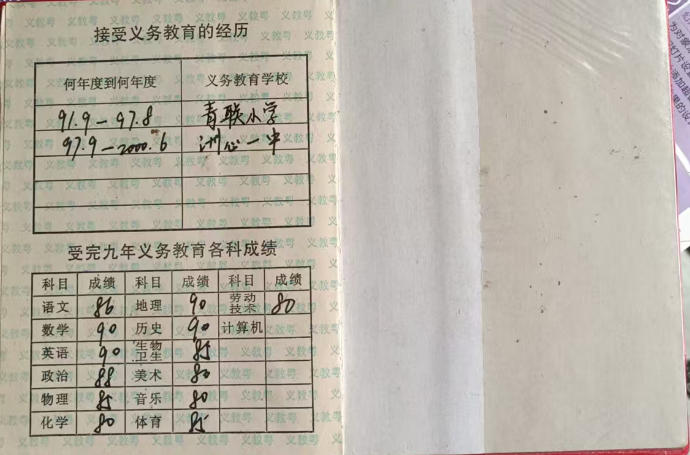 接受义务教育的经历
何年度到何年度 义务教育学校
91.9－97.8 青联小学
97.9－2000.6 洲心一中
受完九年义务教育各科成绩
科目 成绩 科目 成绩 科目 成绩
语文 86 地理 90 劳动技术 80
数学 90 历史 90 计算机
英语 90 生物卫生 85
政治 88 美术 80
物理 85 音乐 80
化学 80 体育 85
为对象
灯片设
添加超
果的设